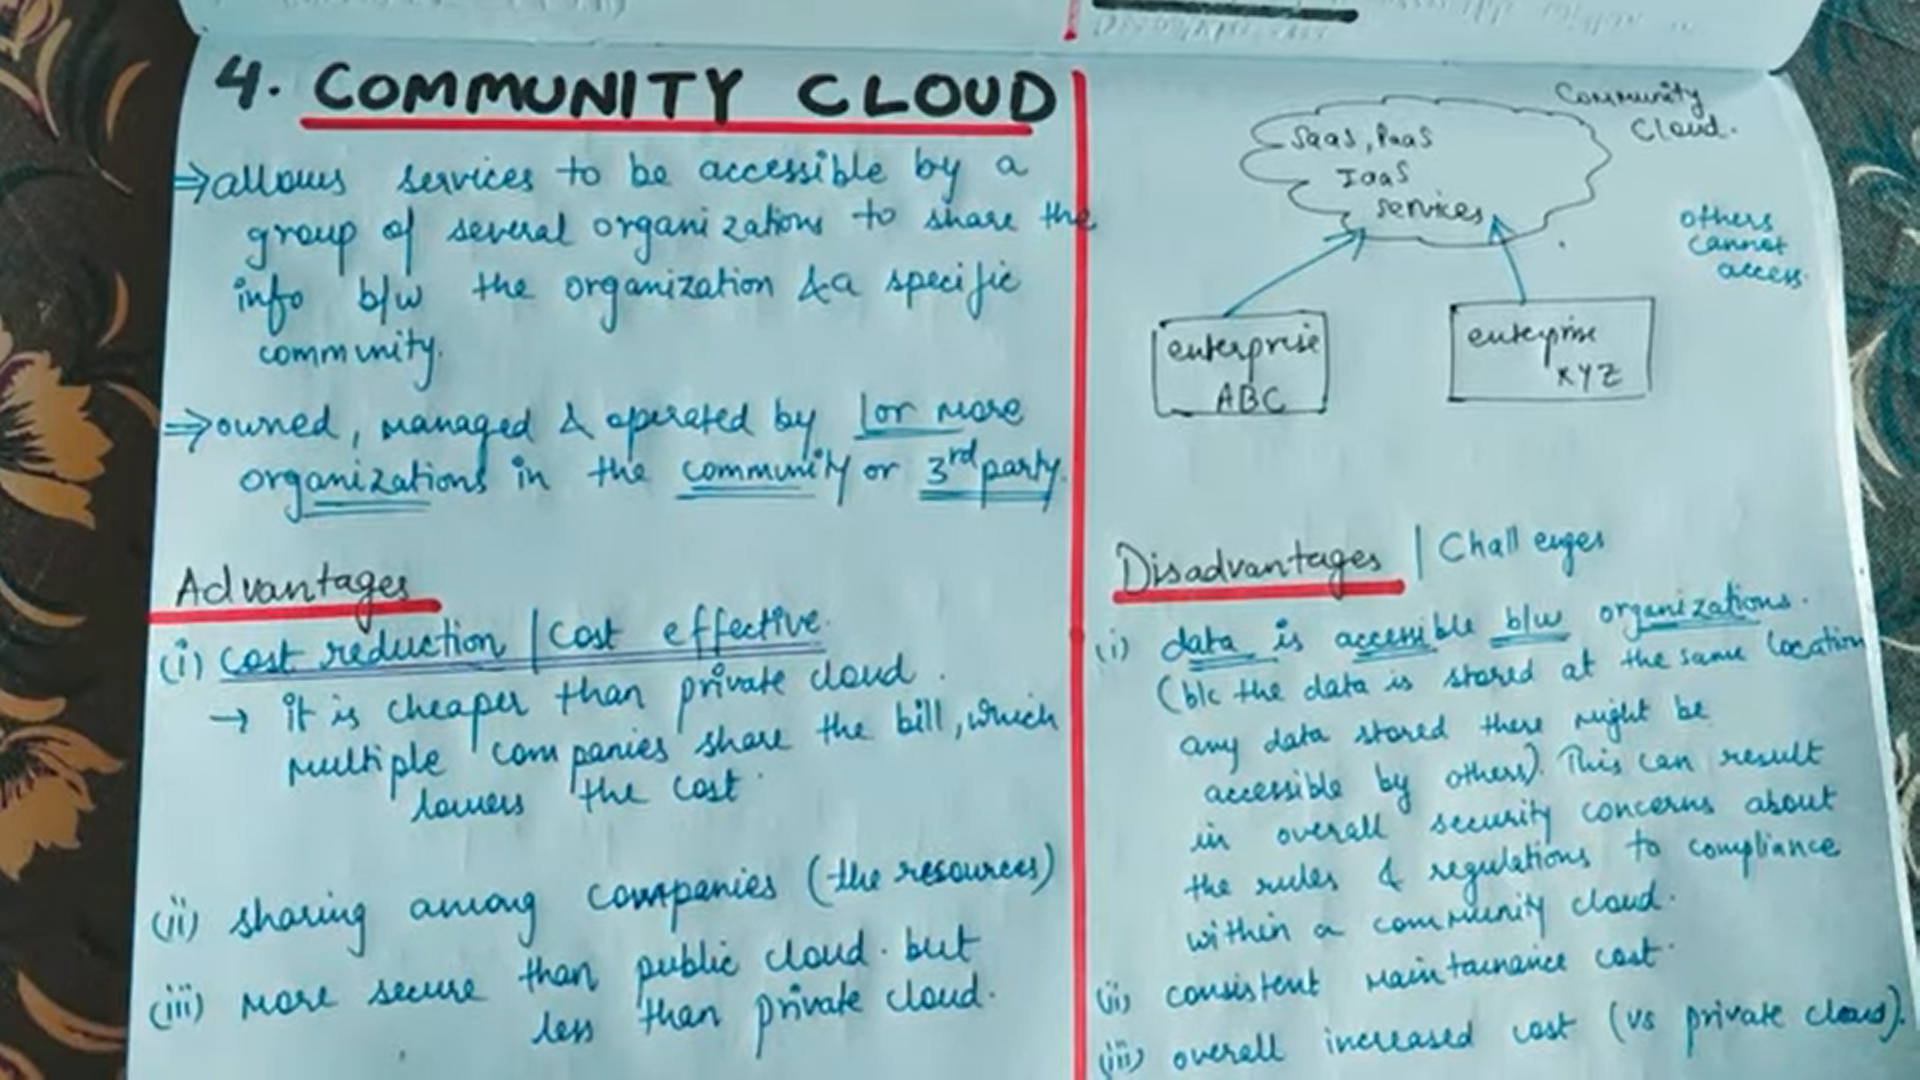 4. COMMUNITY CLOUD
⇒ allows services to be accessible by a
group of several organizations to share the
info b/w the organization & a specific
community.
⇒ owned, managed & operated by 1 or more
organizations in the community or 3rd party.
Advantages
(i) Cost reduction | Cost effective.
→ it is cheaper than private cloud.
multiple companies share the bill, which
lowers the cost.
(ii) sharing among companies (the resources)
(iii) more secure than public cloud. but
less than private cloud.
Community
Cloud.
SaaS, PaaS
IaaS
services
others
cannot
access.
enterprise
ABC
enterprise
XYZ
Disadvantages | Challenges
(i) data is accessible b/w organizations.
(b/c the data is stored at the same location
any data stored there might be
accessible by others). This can result
in overall security concerns about
the rules & regulations to compliance
within a community cloud.
(ii) consistent maintainance cost.
(iii) overall increased cost (vs private cloud).